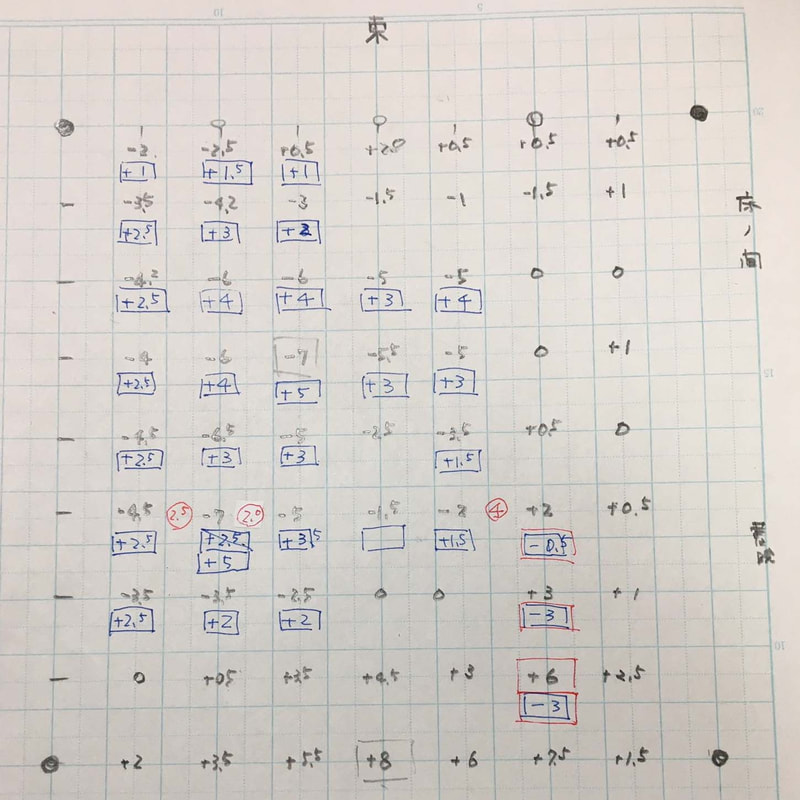 10 5
東
20
-2 -2.5 +0.5 +2.0 +0.5 +0.5 +0.5
+1 +1.5 +1
-3.5 -4.2 -3 -1.5 -1 -1.5 +1
+2.5 +3 +2
床ノ間
-4.2 -6 -6 -5 -5 0 0
+2.5 +4 +4 +3 +4
-4 -6 -7 -5.5 -5 0 +1
15
+2.5 +4 +5 +3 +3
-4.5 -6.5 -5 -2.5 -3.5 +0.5 0
+2.5 +3 +3 +1.5
-4.5 2.5 -7 2.0 -5 -1.5 -2 4 +2 +0.5
+2.5 +2.5 +3.5 +1.5 -0.5
+5
-3.5 -3.5 -2.5 0 0 +3 +1
+2.5 +2 +2 -3
10
0 +0.5 +3.5 +4.5 +3 +6 +2.5
-3
+2 +3.5 +5.5 +8 +6 +7.5 +1.5